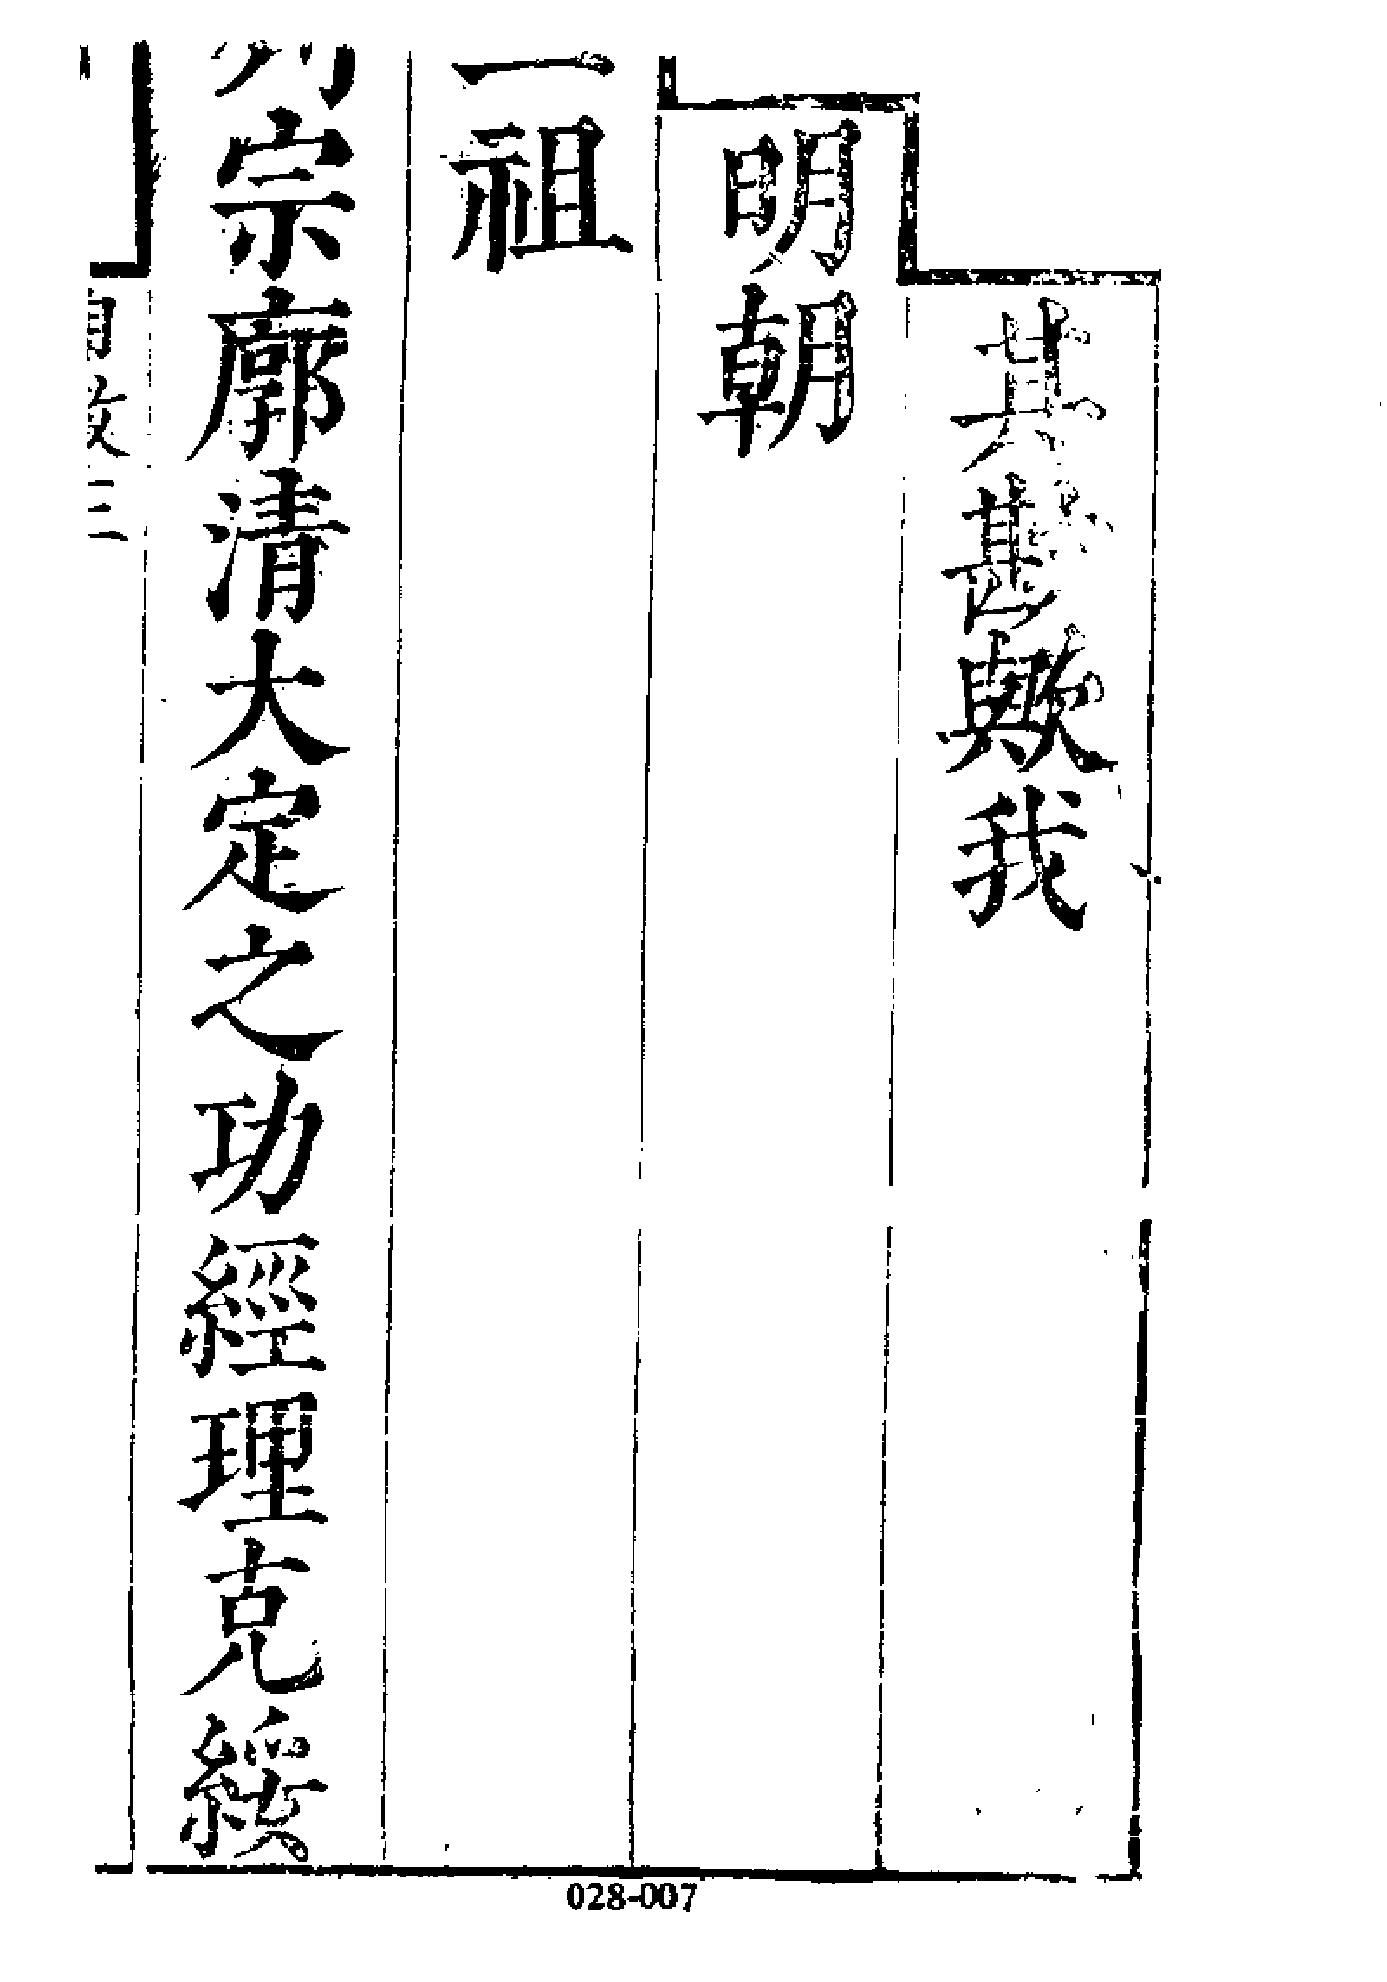 其甚歟我
明朝
一祖
列宗廓清大定之功經理克綏
三
028-007